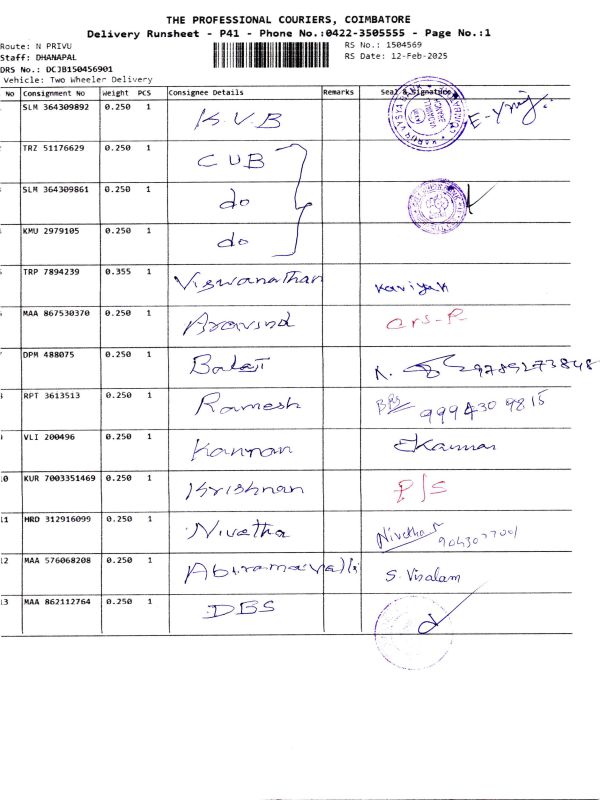 THE PROFESSIONAL COURIERS, COIMBATORE
Delivery Runsheet - P41 - Phone No.:0422-3505555 - Page No.:1
Route: N PRIVU RS No.: 1504569
Staff: DHANAPAL RS Date: 12-Feb-2025
DRS No.: DCJB150456901
Vehicle: Two Wheeler Delivery
No Consignment No Weight PCS Consignee Details Remarks Seal & Signature
SLM 364309892 0.250 1 K.V.B
TRZ 51176629 0.250 1 CUB
SLM 364309861 0.250 1 do
KMU 2979105 0.250 1 do
TRP 7894239 0.355 1 Viswanathan Kaviya K
MAA 867530370 0.250 1 Aravind
DPM 488075 0.250 1 Balaji
RPT 3613513 0.250 1 Ramesh 999430 9815
VLI 200496 0.250 1 Kannan
KUR 7003351469 0.250 1 Krishnan P/S
11 HRD 312916099 0.250 1 Nivetha Nivetha
MAA 576068208 0.250 1 Abiramavalli S. Visalam
MAA 862112764 0.250 1 DBS